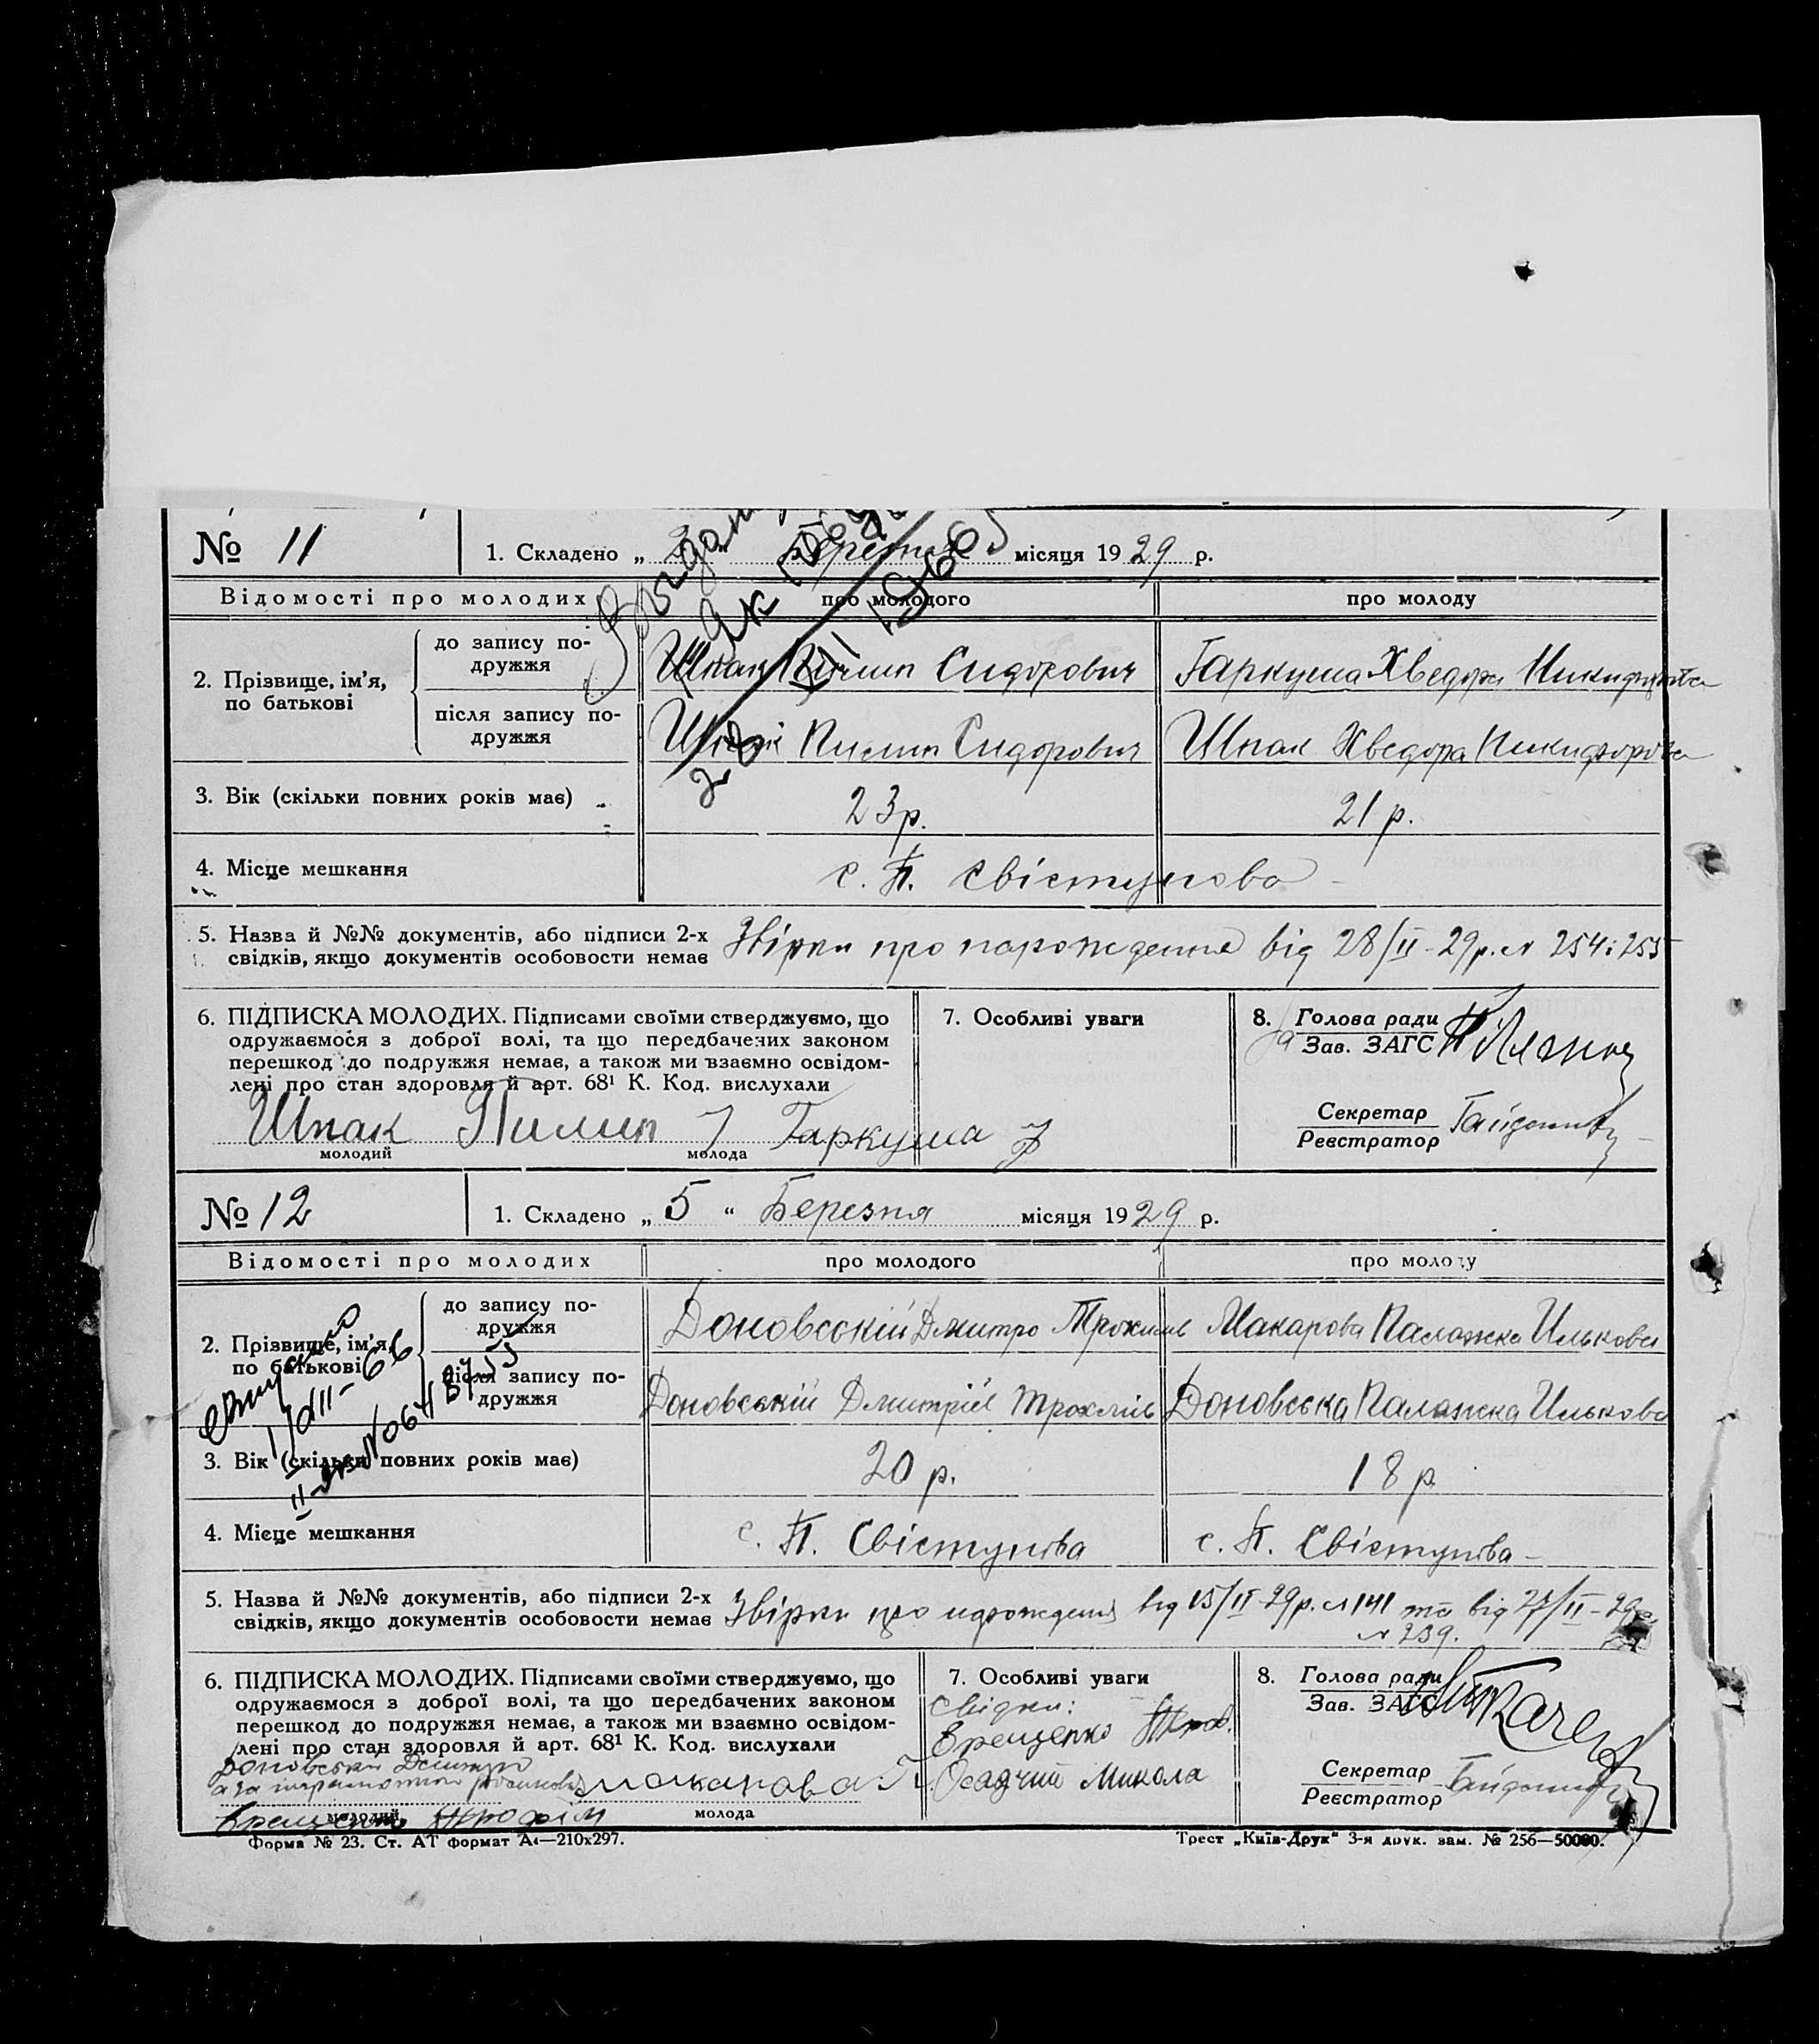 № 11
1. Складено „ “ Березня місяця 1929 р.
Відомості про молодих
про молодого
про молоду
2. Прізвище, ім’я, по батькові
до запису подружжя
Шпак Пилип Сидорович
Гаркуша Хведора Никифорівна
після запису подружжя
Шпак Пилип Сидорович
Шпак Хведора Никифоровна
3. Вік (скільки повних років має)
23 р.
21 р.
4. Місце мешкання
с. П. Свістунова
5. Назва й №№ документів, або підписи 2-х
свідків, якщо документів особовости немає
Звірки про народження від 28/II-29р. № 254 і 255
6. ПІДПИСКА МОЛОДИХ. Підписами своїми стверджуємо, що
одружаємося з доброї волі, та що передбачених законом
перешкод до подружжя немає, а також ми взаємно освідом-
лені про стан здоровля й арт. 68¹ К. Код. вислухали
Шпак Пилип
Гаркуша
молодий
молода
7. Особливі уваги
8. Голова ради
Зав. ЗАГС
Секретар
Реєстратор
№ 12
1. Складено „ 5 “ Березня місяця 1929 р.
Відомості про молодих
про молодого
про молоду
2. Прізвище, ім’я, по батькові
до запису подружжя
Доновський Дмитро
Макарова Палажка Илькова
після запису подружжя
Доновський
Доновська Палажка Илькова
3. Вік (скільки повних років має)
20 р.
18 р.
4. Місце мешкання
с. П. Свістунова
с. П. Свістунова
5. Назва й №№ документів, або підписи 2-х
свідків, якщо документів особовости немає
Звірки про народження від 15/II-29р. № 141 та від 27/II-29р.
№ 239.
6. ПІДПИСКА МОЛОДИХ. Підписами своїми стверджуємо, що
одружаємося з доброї волі, та що передбачених законом
перешкод до подружжя немає, а також ми взаємно освідом-
лені про стан здоровля й арт. 68¹ К. Код. вислухали
Доновський Дмитро
Макарова
молодий
молода
7. Особливі уваги
Свідки:
Ерещенко
Осадчий Микола
8. Голова ради
Зав. ЗАГС
Ткаченко
Секретар
Реєстратор
Форма № 23. Ст. АТ формат А4—210x297.
Трест „Київ-Друк“ 3-я друк. зам. № 256—50000.